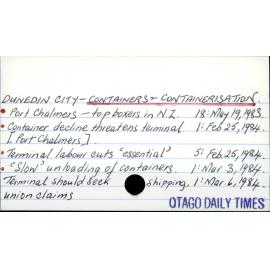 DUNEDIN CITY - CONTAINERS & CONTAINERISATION
• Port Chalmers - top boxers in N.Z. 18: May 19, 1983.
• Container decline threatens terminal 1: Feb 25, 1984.
[Port Chalmers]
• Terminal labour cuts 'essential' 5: Feb 25, 1984.
• "Slow" unloading of containers. 1: Mar 3, 1984.
Terminal should seek shipping, 1: Mar 6, 1984.
union claims
OTAGO DAILY TIMES